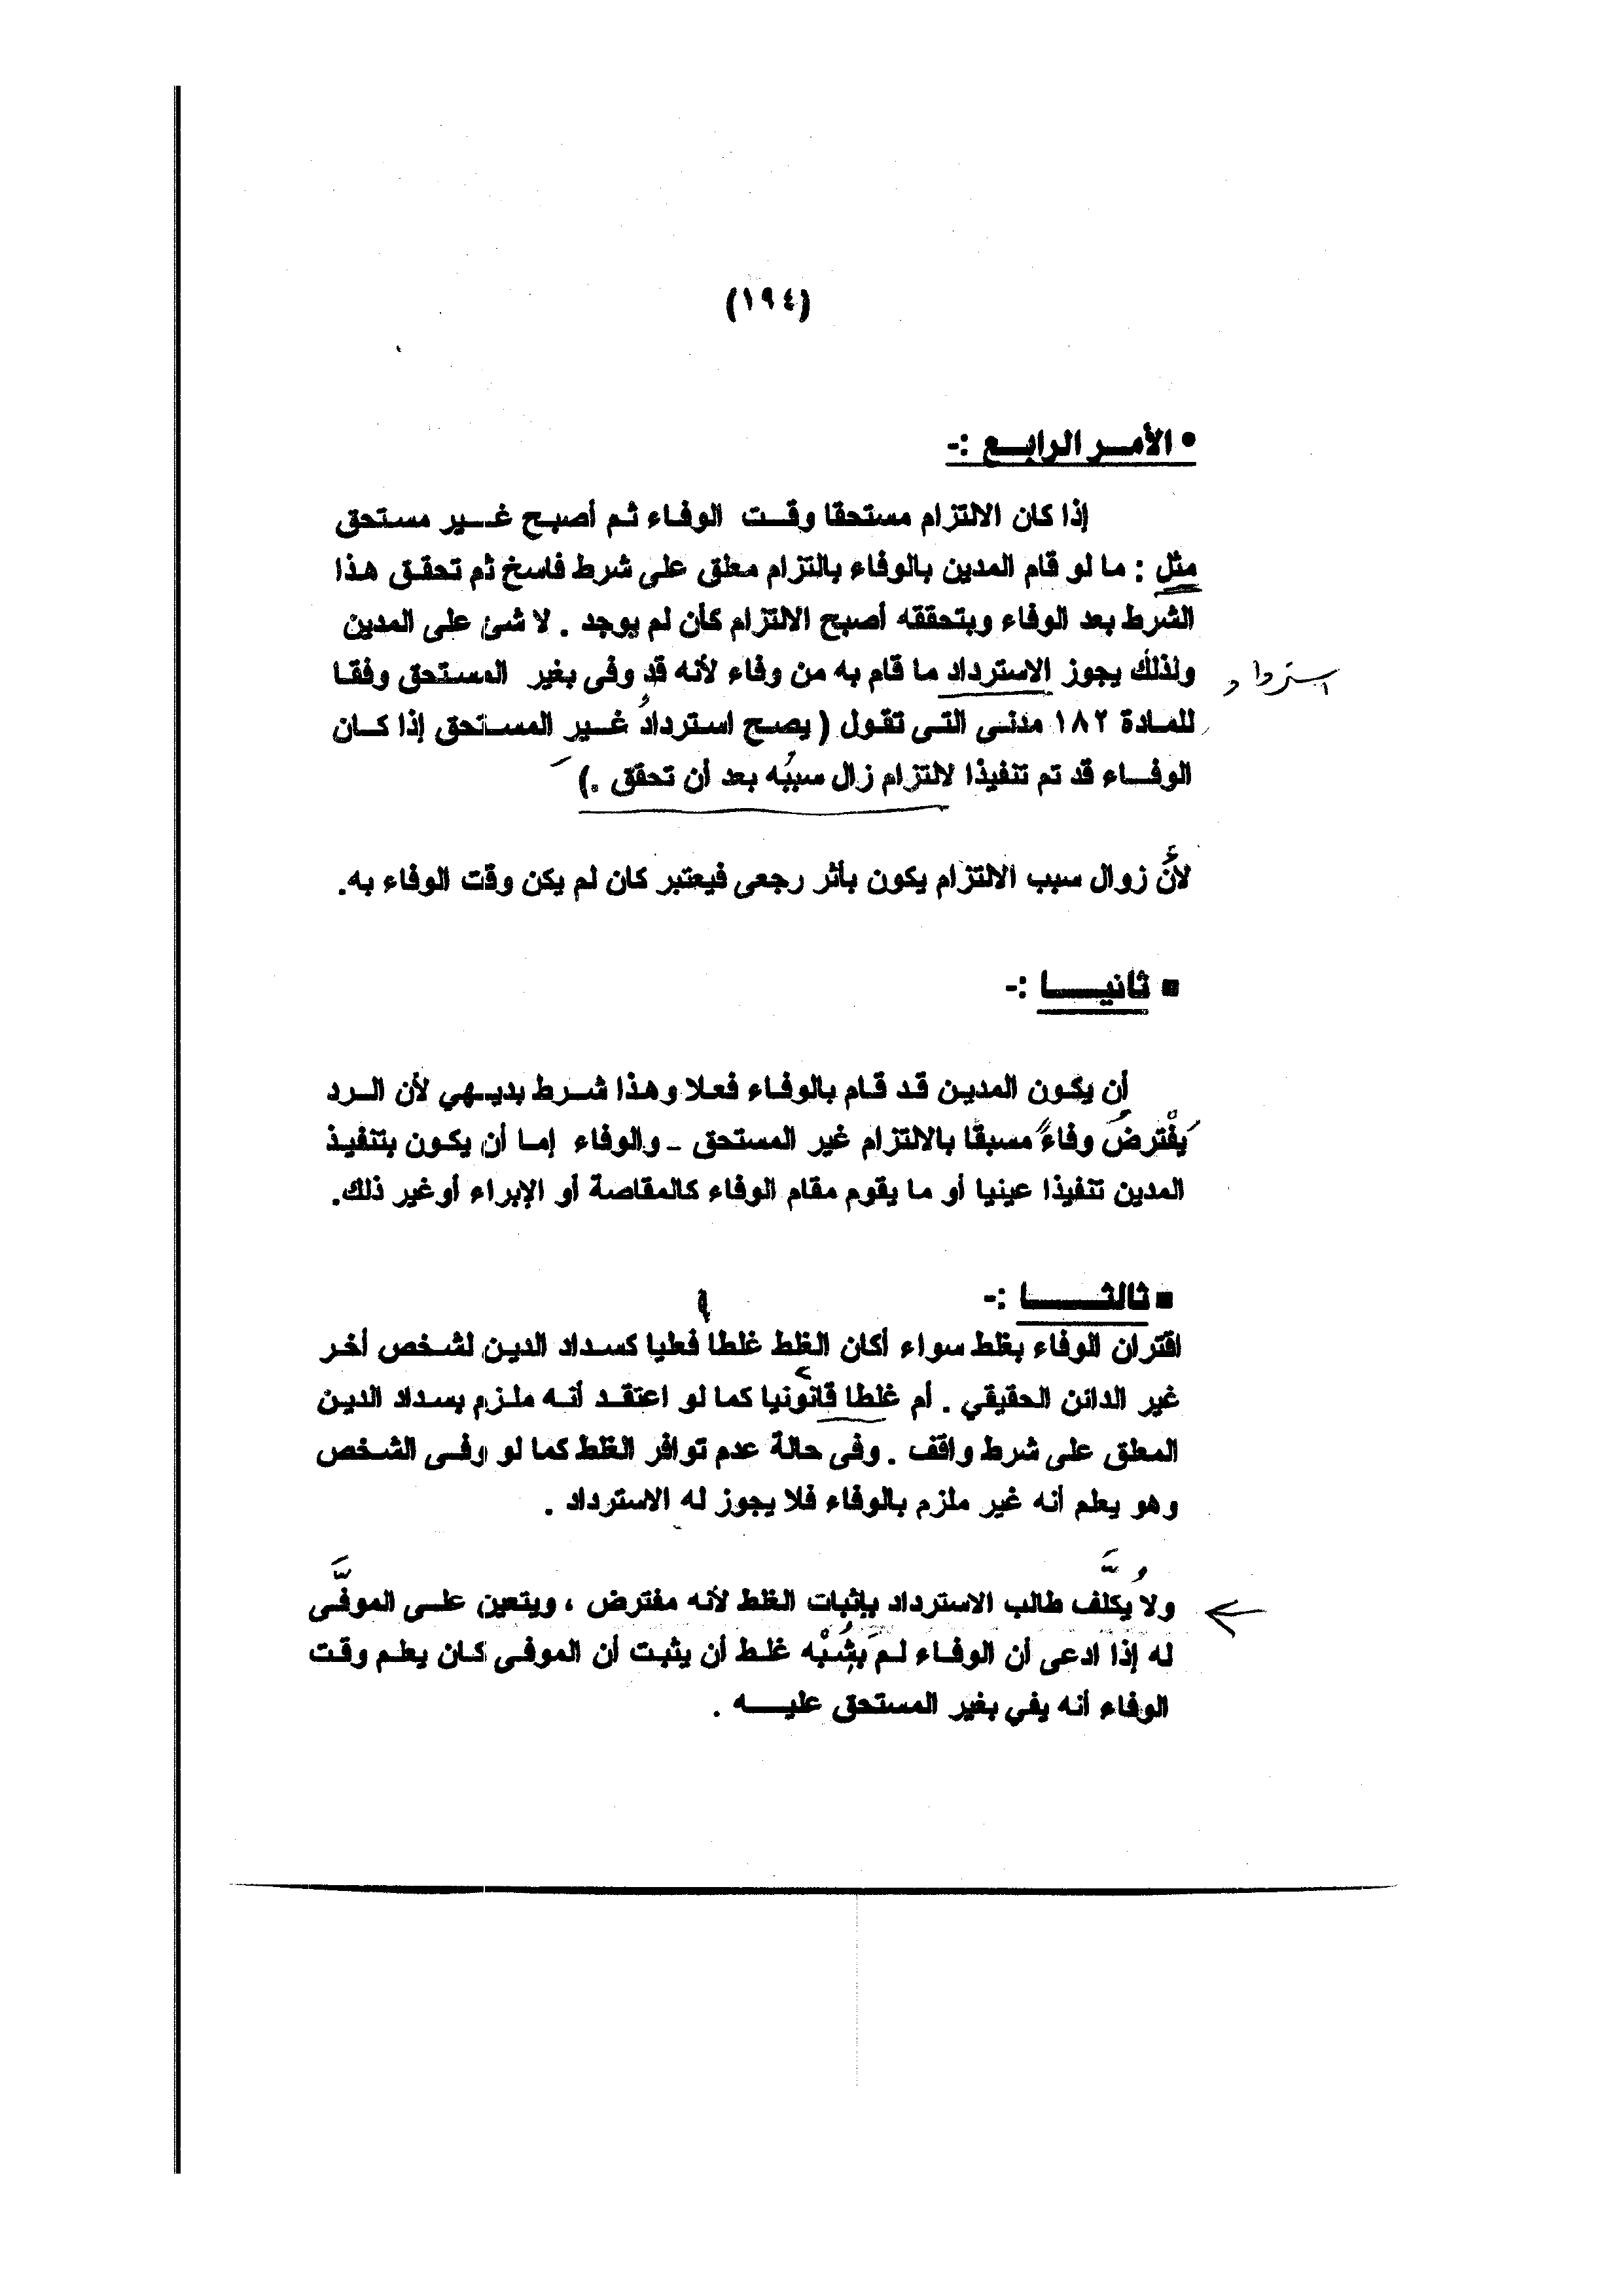 (١٩٤)
• الأمــر الرابــع :-
إذا كان الالتزام مستحقا وقــت الوفـاء ثـم أصبـح غــير مستحق
مثل : ما لو قام المدين بالوفاء بالتزام معلق على شرط فاسخ ثم تحقـق هـذا
الشرط بعد الوفاء وبتحققه أصبح الالتزام كأن لم يوجد . لا شئ على المدين
ولذلك يجوز الاسترداد ما قام به من وفاء لأنه قد وفى بغير المستحق وفقـا
استرداد
للمـادة ١٨٢ مدنـى التـى تقـول ( يصـح اسـتردادُ غــير المسـتحق إذا كــان
الوفــاء قد تم تنفيذا لالتزام زال سببُه بعد أن تحقق .)
لأنَّ زوال سبب الالتزام يكون بأثر رجعى فيعتبر كان لم يكن وقت الوفاء به.
■ ثانيــــا :-
أن يكـون المديـن قـد قـام بالوفـاء فعـلا وهـذا شـرط بديـهي لأن الـرد
يَفْترضُ وفاءً مسبقًا بالالتزام غير المستحق - والوفاء إمـا أن يكـون بتنفيـذ
المدين تنفيذا عينيا أو ما يقوم مقام الوفاء كالمقاصة أو الإبراء أوغير ذلك.
■ ثالثـــــا :-
اقتران الوفاء بغلط سواء أكان الغلط غلطاً فعليا كسـداد الديـن لشـخص أخـر
غير الدائن الحقيقي . أم غلطا قانونيا كما لو اعتقـد أنـه ملـزم بسـداد الديـن
المعلق على شرط واقف . وفى حالة عدم توافر الغلط كما لو وفـى الشـخص
وهو يعلم أنه غير ملزم بالوفاء فلا يجوز له الاسترداد .
ولا يُكلَّف طالب الاسترداد بإثبات الغلط لأنه مفترض ، ويتعين علـى الموفَّى
له إذا ادعى أن الوفـاء لـم يَشُبْه غلـط أن يثبـت أن الموفـى كـان يعلـم وقـت
الوفاء أنه يفي بغير المستحق عليــــه .